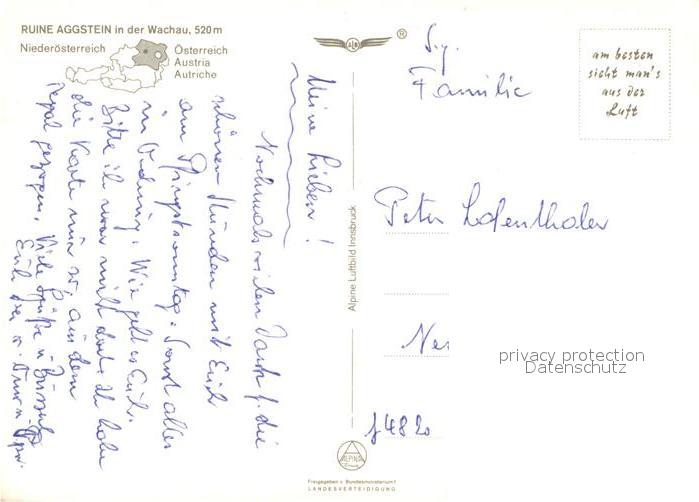 RUINE AGGSTEIN in der Wachau, 520 m
Niederösterreich
Österreich
Austria
Autriche
Meine Lieben!
Nochmals vielen Dank f. die
schönen Stunden mit Euch
am Pfingstsonntag. Sonst alles
in Ordnung. Wie geht es Euch.
Bitte ich war nicht dort. Ich habe
die Karte nur so aus dem
gezogen. Viele Grüße u. Bussi
Alpine Luftbild Innsbruck
ALPINA
Freigegeben v. Bundesministerium f.
LANDESVERTEIDIGUNG
®
Familie
Peter Lofenthaler
am besten
sieht man's
aus der
Luft
privacy protection
Datenschutz